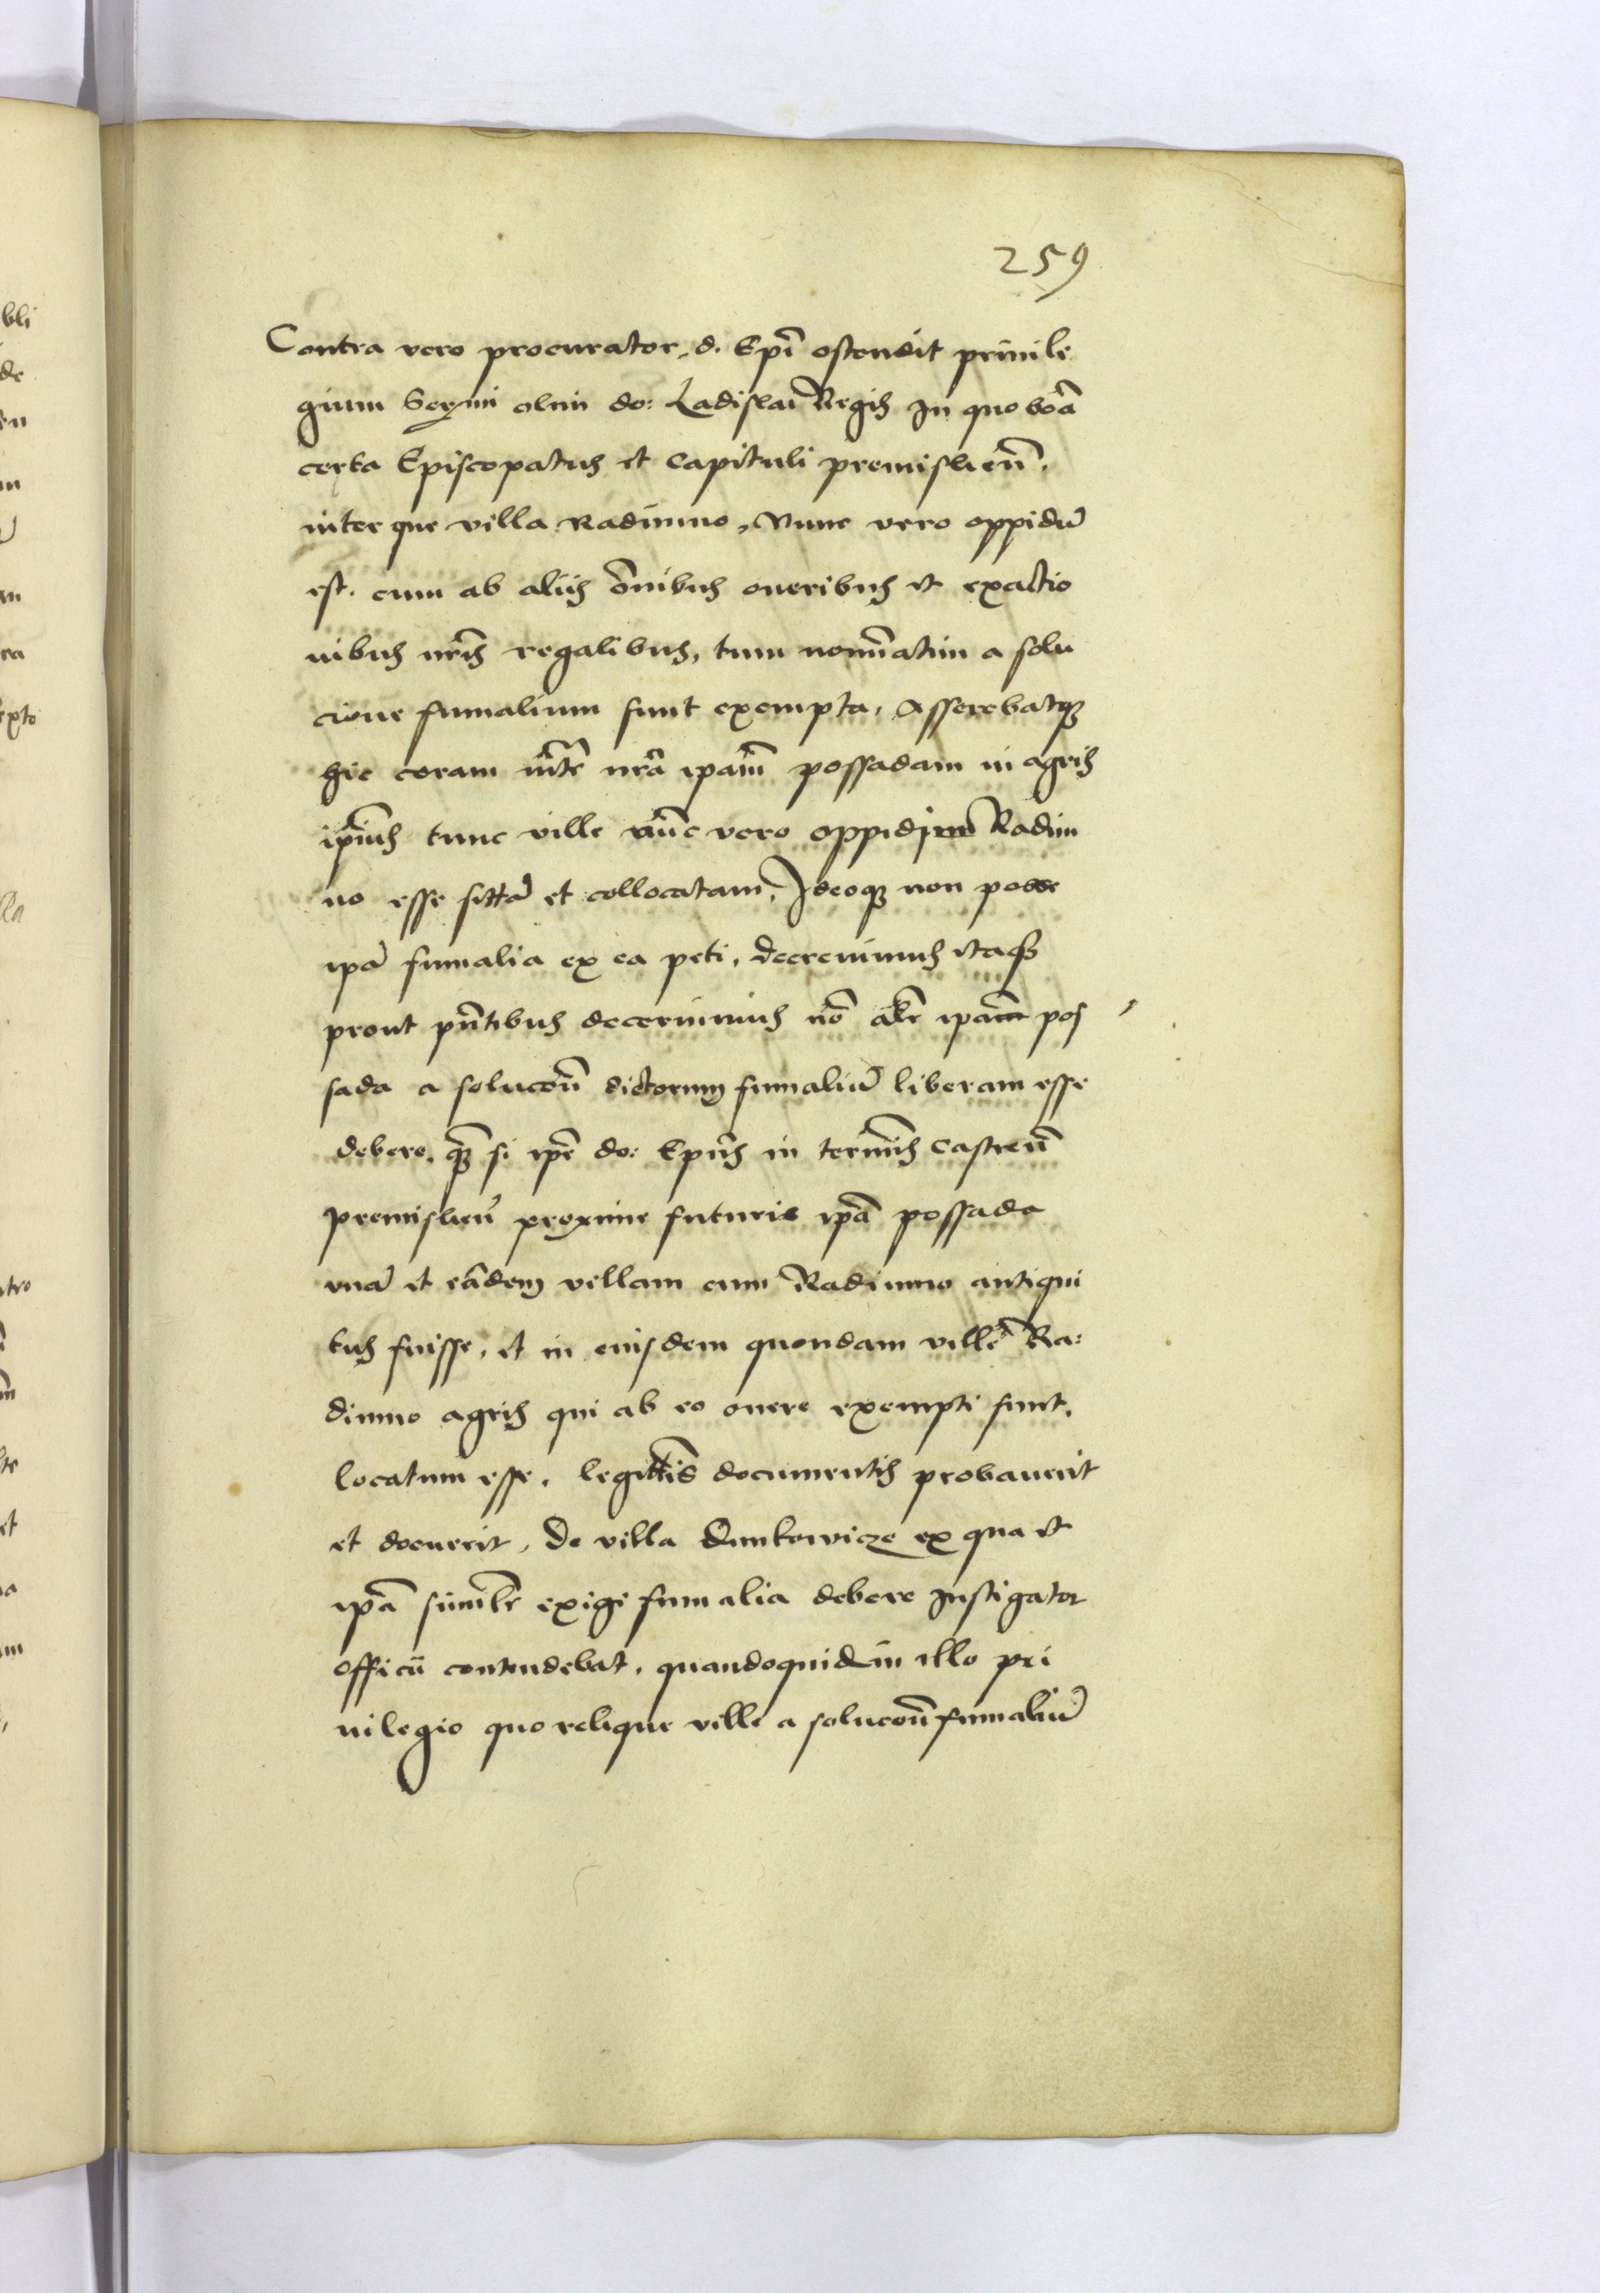 259
Contra vero procurator d. Epi ostendit priuile
gium Sermi olim do: Ladislai Regis In quo bona
certa Episcopatus et Capituli premislien.
inter que villa Radimno, Nunc vero oppidu
est. cum ab aliis omibus oneribus et exactio
nibus nris regalibus, tum nominatim a solu
cione fumalium sunt exempta, Asserebatq
hic coram mte nra ipam possadam in agris
ipius tunc ville nunc vero oppidi Radim
no esse sitta et collocatam, Ideoq non posse
ipa fumalia ex ea peti, decreuimus itaq
prout pntibus decernimus no alr ipam pos
sada a solucon dictorum fumaliu liberam esse
debere, q si ipe do: Epus in terminis Castren
premislien proxime futuris ipa possada
vna et eadem villam cum Radimno antiqui
tus fuisse, et in eiusdem quondam ville Ra:
dimno agris qui ab eo onere exempti sunt,
locatum esse, legittis documentis probauerit
et docuerit, De villa Dunkowicze ex qua et
ipa similr exigi fumalia debere Instigator
officii contendebat, quandoquid in illo pri
uilegio quo relique ville a solucon fumaliu